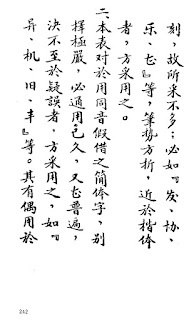 刻，故所采不多；必如『发、协、
乐、』等，筆势方折，近於楷体
者，方采用之。
二、本表对於用同音假借之简体字，别
择極嚴，必通用已久，又普遍，
決不至於疑误者，方采用之，如『
异、机、旧、丰』等。其有偶用於
242